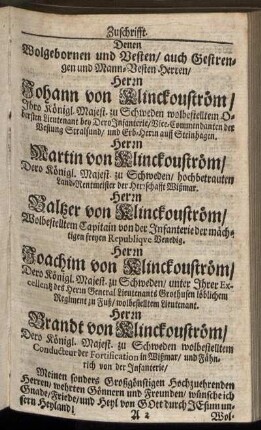 Zuschrifft.
Denen
Wolgebornen und Vesten/ auch Gestren-
gen und Mann-Vesten Herren/
Herrn
Johann von Klinckouström/
Ihro Königl. Majest. zu Schweden wolbestelltem O-
bersten Lieutenant bey der Infanterie/ Vice-Commendanten der
Vestung Stralsund/ und Erb-Herrn auff Steinhagen.
Herrn
Martin von Klinckouström/
Dero Königl. Majest. zu Schweden/ hochbetrauten
Land-Rentmeister der Herrschafft Wißmar.
Herrn
Baltzer von Klinckouström/
Wolbestelltem Capitain von der Infanterie der mäch-
tigen freyen Republiqve Venedig.
Herrn
Joachim von Klinckouström/
Dero Königl. Majest. zu Schweden/ unter Ihrer Ex-
cellentz des Herrn General Lieutenants Grothusen löblichem
Regiment zu Fuß/ wolbestelltem Lieutenant.
Herrn
Brandt von Klinckouström/
Dero Königl. Majest. zu Schweden wolbestelltem
Conducteur der Fortification in Wißmar/ und Fähn-
rich von der Infanterie/
Meinen sonders Großgünstigen Hochzuehrenden
Herren/ wehrten Gönnern und Freunden/ wünsche ich
Gnade/ Friede/ und Heyl von GOtt durch JEsum un-
sern Heyland!
A 2
Wol-